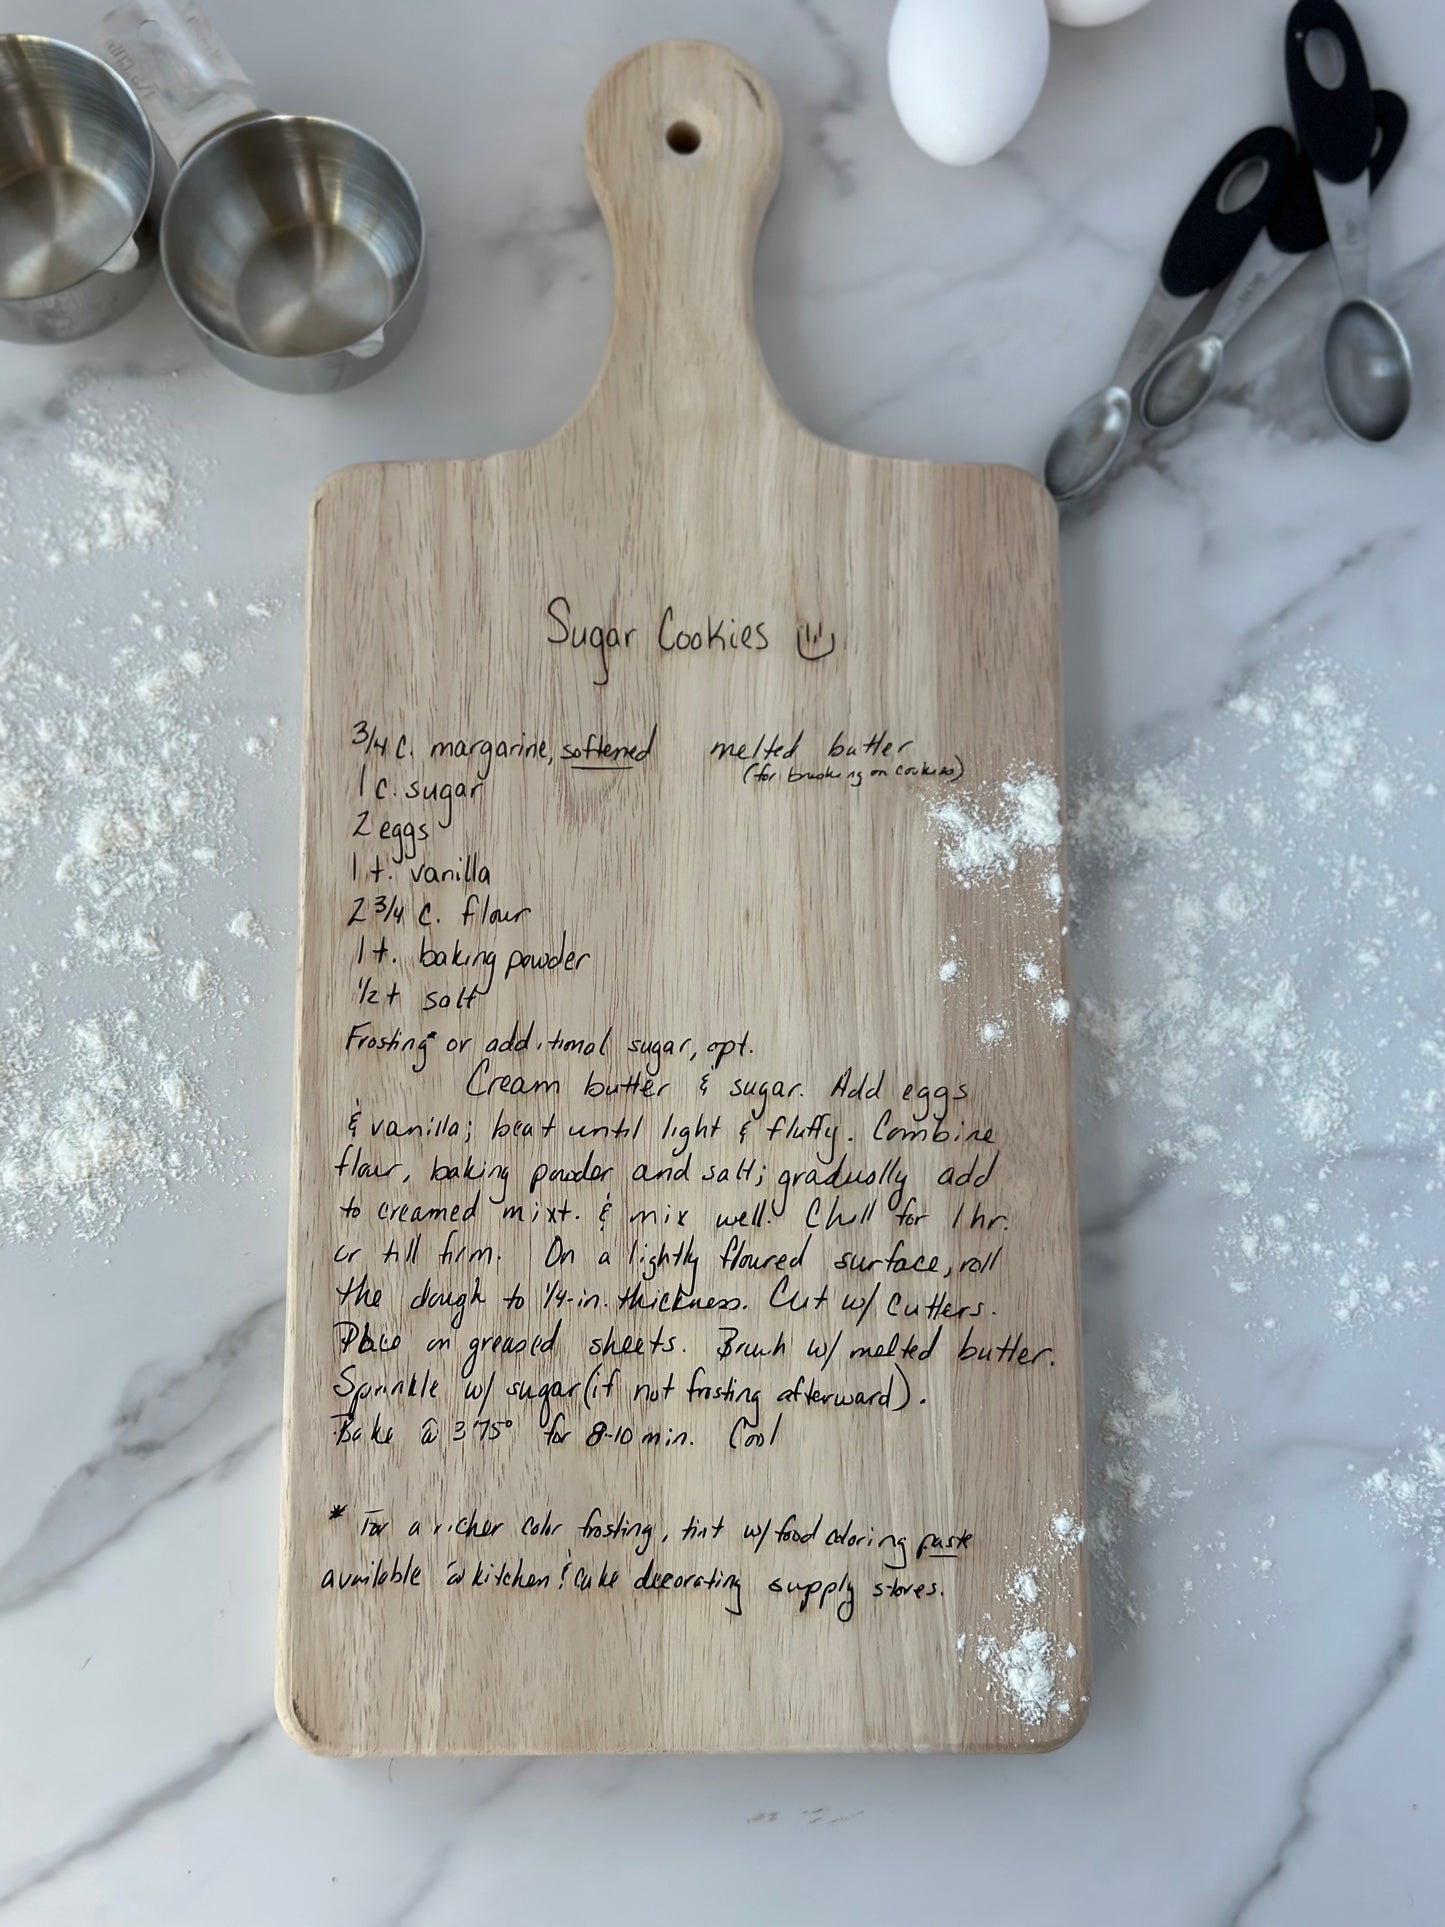 Sugar Cookies
3/4 c. margarine, softened melted butter
(for brushing on cookies)
1 c. sugar
2 eggs
1 t. vanilla
2 3/4 c. flour
1 t. baking powder
1/2 t salt
Frosting* or additional sugar, opt.
Cream butter & sugar. Add eggs
& vanilla; beat until light & fluffy. Combine
flour, baking powder and salt; gradually add
to creamed mixt. & mix well. Chill for 1 hr.
or till firm. On a lightly floured surface, roll
the dough to 1/4-in. thickness. Cut w/ cutters.
Place on greased sheets. Brush w/ melted butter.
Sprinkle w/ sugar (if not frosting afterward).
Bake @ 375° for 8-10 min. Cool
* For a richer color frosting, tint w/ food coloring paste
available @ kitchen & cake decorating supply stores.